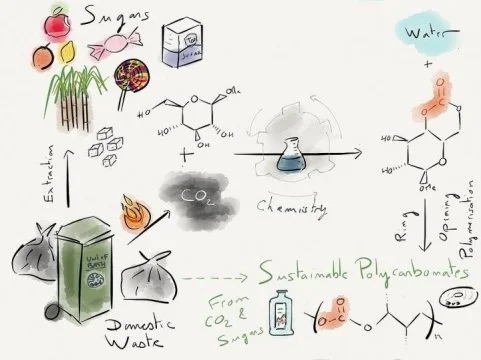 Sugars
Water
+
O
C
O
O
O
HO
HO
OMe
HO
HO
O
OMe
OH
OH
+
Extraction
CO2
Chemistry
Ring
Opening
Polymerization
UNI OF
BATH
Domestic
Waste
Sustainable Polycarbonates
From
CO2 &
Sugars
O
C
O
O
n